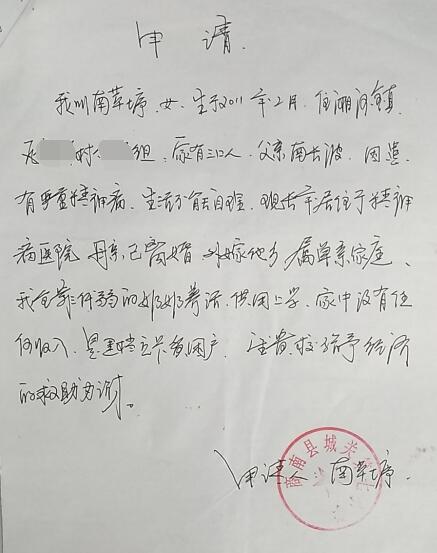 申请
我叫南草塝,女,生于2011年2月,住湘河镇
村 组,家有三口人,父亲南长波,因患
有严重精神病,生活不能自理,现长年居住于精神
病医院,母亲已离婚,外嫁他乡,属单亲家庭、
我全靠体弱的奶奶养活,供用上学,家中没有任
何收入,是建档立卡贫困户,注贵校给予经济
的救助为谢。
申请人:南草塝.
商南县城关